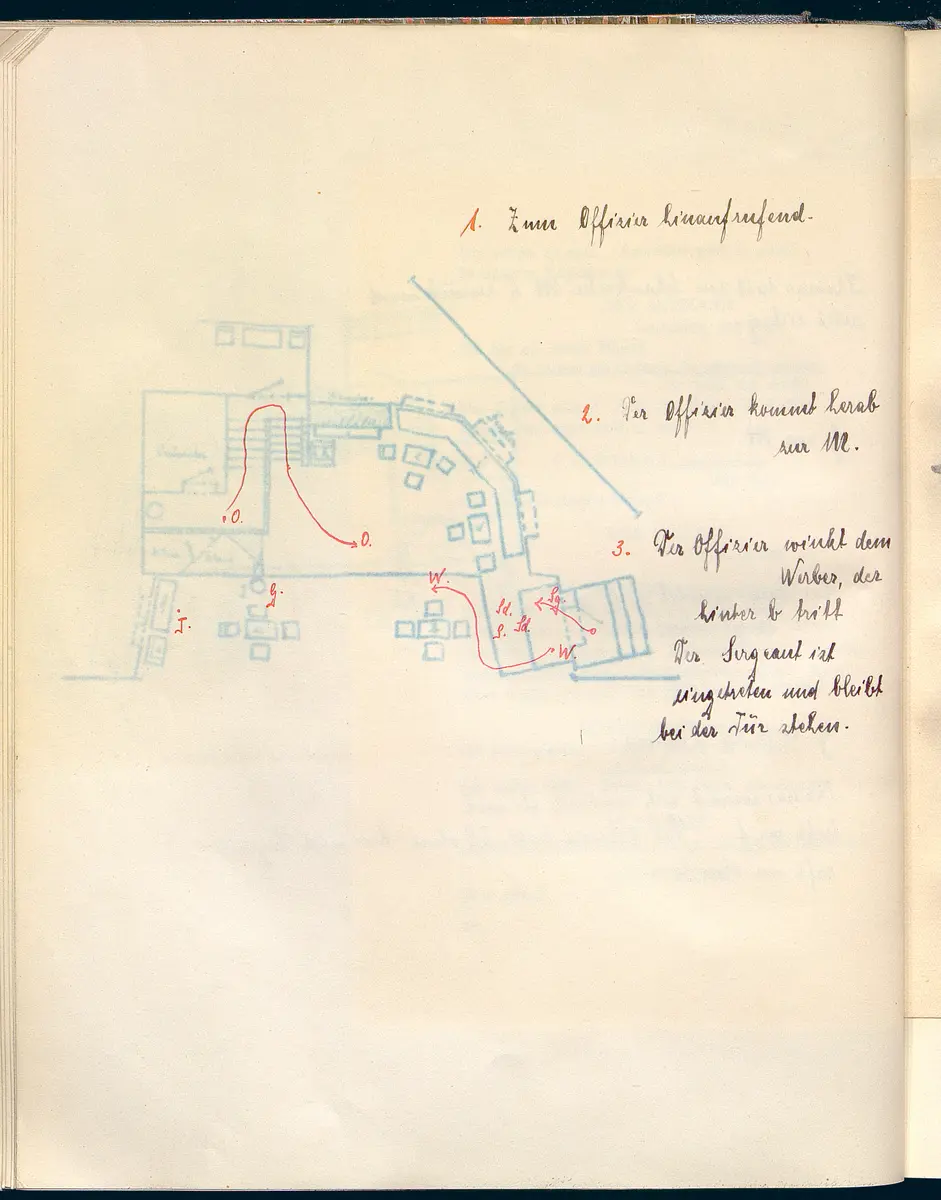 1. Zum Offizier hinaufrufend.
2. Der Offizier kommt herab
zur M.
3. Der Offizier winkt dem
Werber, der
hinter b tritt
Der Sergeant ist
eingetreten und bleibt
bei der Tür stehen.
O.
O.
W.
G.
J.
Sd.
Sg.
S.
Sd.
W.